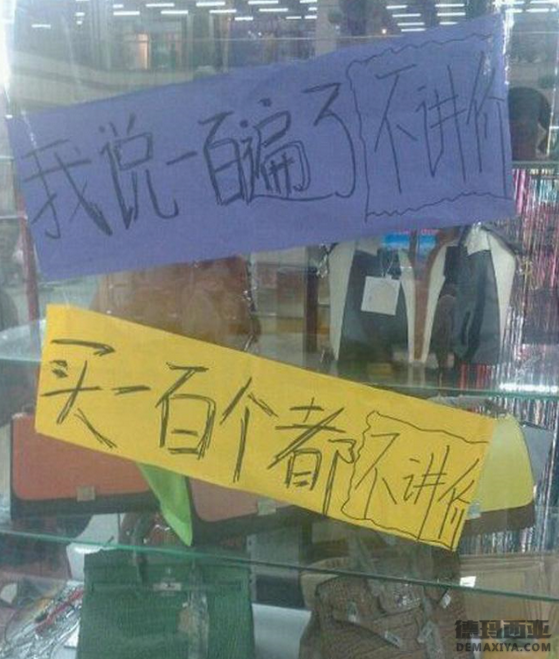 我说一百遍了不讲价
买一百个都不讲价
德玛西亚
DEMAXIYA.COM